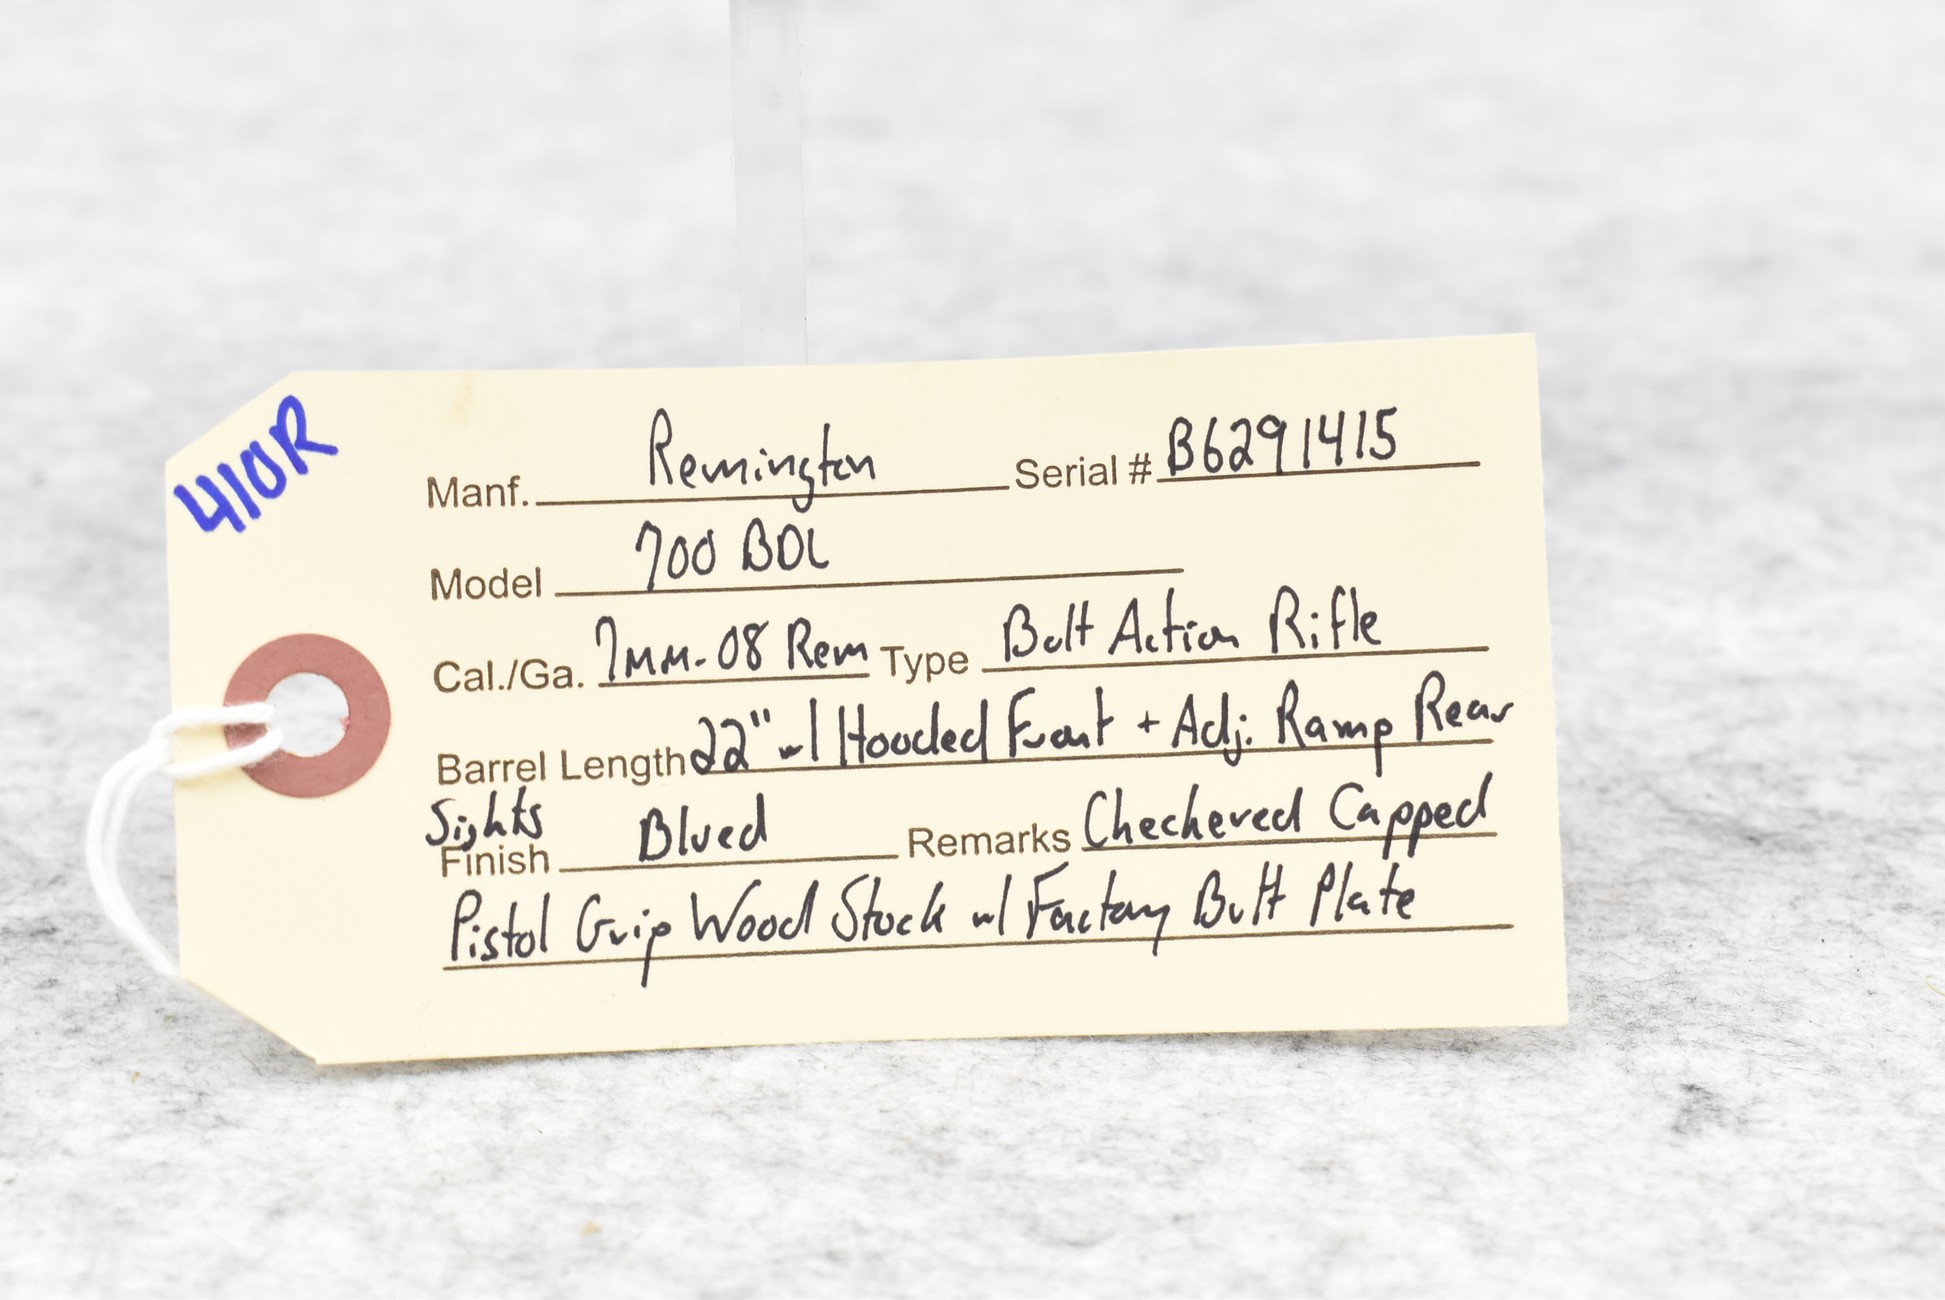 410R
Manf. Remington Serial # B6291415
Model 700 BDL
Cal./Ga. 7mm-08 Rem Type Bolt Action Rifle
Barrel Length 22" w/ Hooded Front + Adj. Ramp Rear
Sights
Finish Blued Remarks Checkered Capped
Pistol Grip Wood Stock w/ Factory Butt Plate